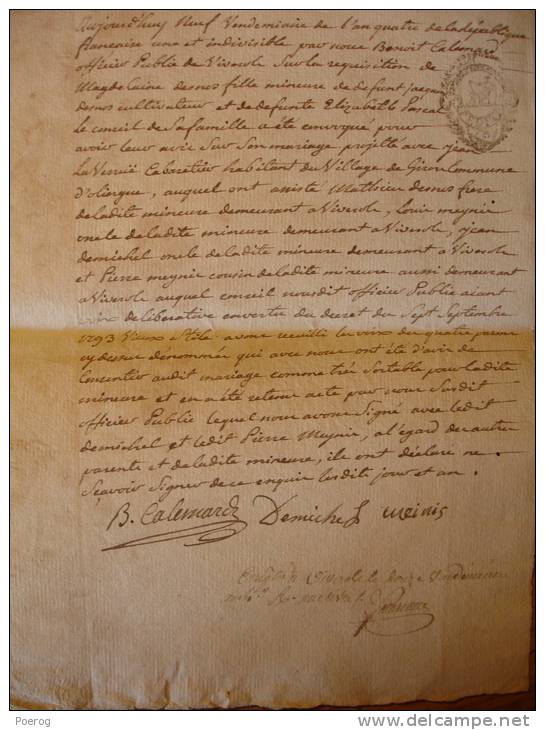 Aujourd'huy neuf Vendemiaire de l'an quatre de la république
francaise une et indivisible par nous Benoit Calemard
officier Public de Viverols sur la requisition de
Magdelaine desnos fille mineure de defunt jacques
desnos cultivateur et de defunte Elizabeth Pascal
Le conseil de sa famille a été convoqué pour
avoir leur avis sur son mariage projetté avec jean
La habitant du Village de commune
D'oliergue, auquel ont assisté Mathieu desnos frere
de ladite mineure demeurant a Viverols, Louis meynis
oncle de ladite mineure demeurant a Viverols, jean
demichel oncle de ladite mineure demeurant a Viverols
et Pierre meynis cousin de ladite mineure aussi demeurant
a Viverols auquel conseil nousdit officier Public aiant
voix deliberative en vertu du decret du sept septembre
1793 vieux stile avons recuilli les voix des quatre parens
cy dessus denommés qui avec nous ont été d'avis de
consentir audit mariage comme très sortable pour ladite
mineure et en a été retenu acte par nous susdit
officier Public lequel nous avons signé avec ledit
demichel et ledit Pierre Meynis, a l'égard des autres
parents et de ladite mineure, ils ont déclaré ne
sçavoir signer de ce enquis lesdits jour et an.
B. Calemard Demichel meinis
a Viverols le vendémiaire
Poerog
delcampe.net